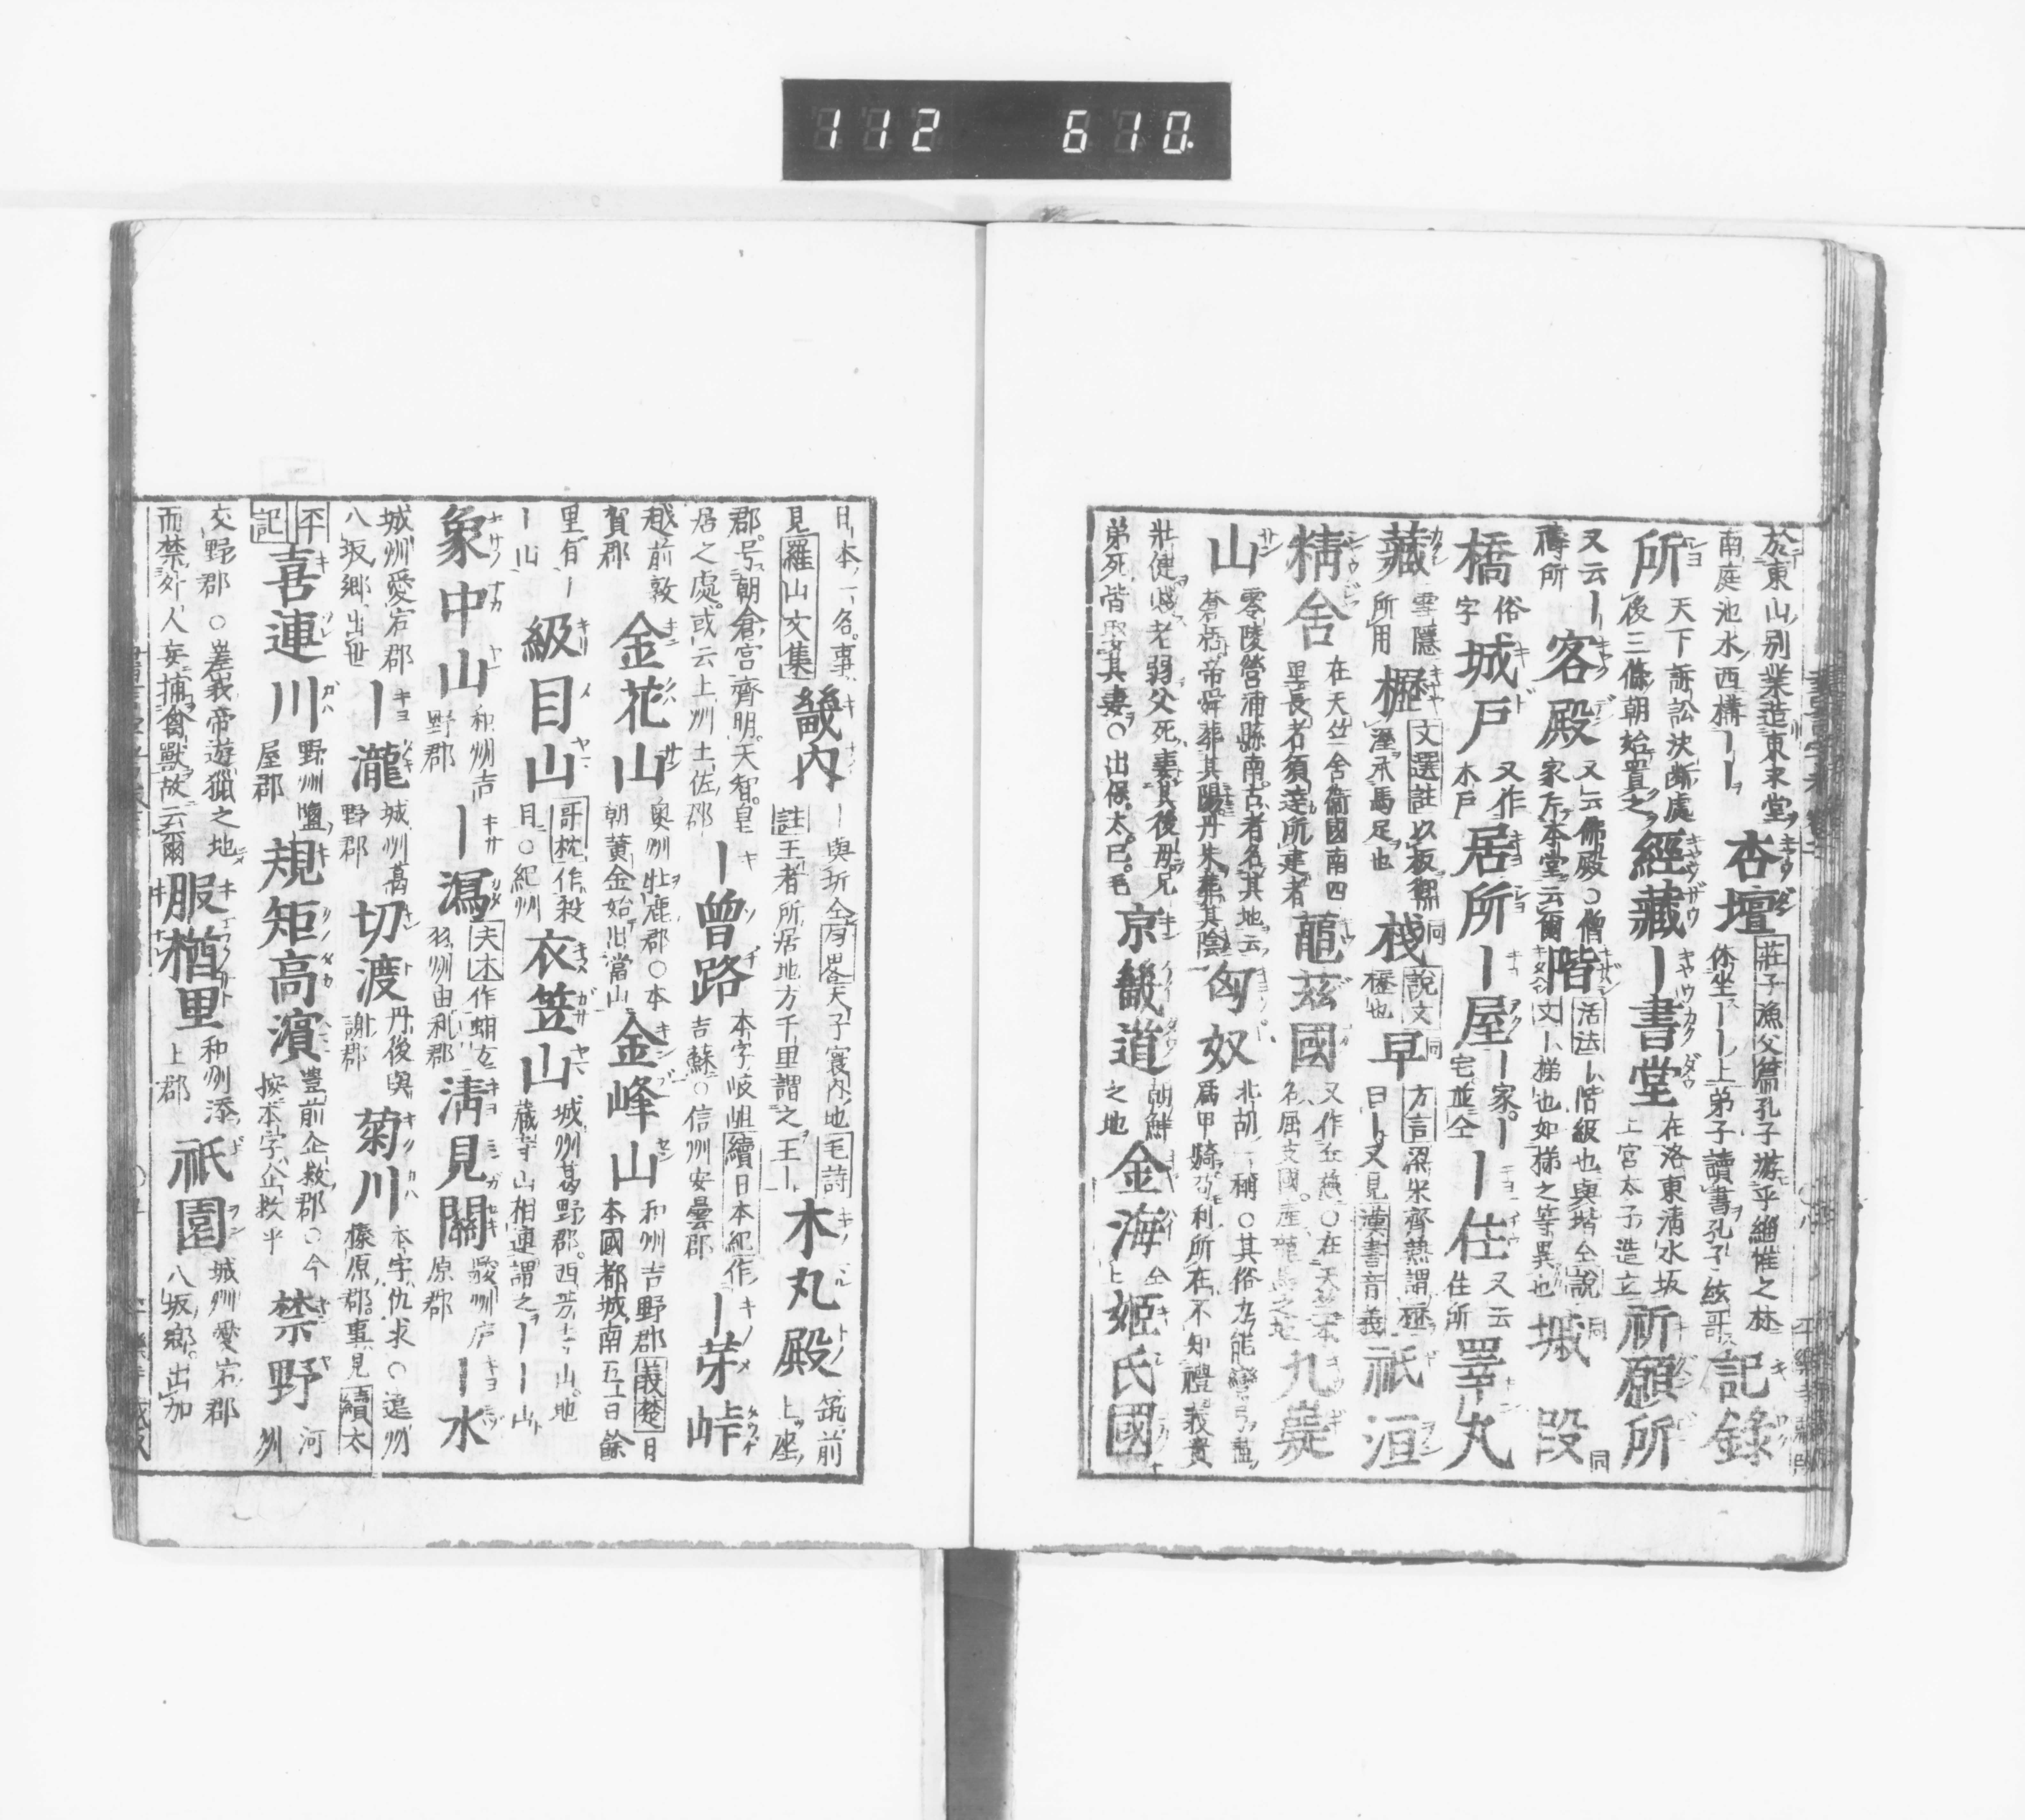 112 610
於東山別業造東求堂
南庭池水西構ーー
杏壇
莊子漁父篇孔子游乎緇帷之林
休坐ーー上弟子讀書孔子絃哥
記錄
所
天下訴訟決斷處
後三條朝始置之
經藏
ー書堂
在洛東清水坂
上宮太子造立
祈願所
又云ー
禱所
客殿
又云佛殿○僧
家方本堂云爾
階
活法ー階級也與堦仝說
文ー梯也如梯之等異也
城
同
段
同
橋
俗
字
城戸
又作
木戸
居所
ー屋
ー家ー
宅並仝
ー住
又云
住所
睪丸
藏
雪隱
所用
櫪
文選註以板
承馬足也
栈
同
說文
櫪也
皁
同
方言梁宋齊
曰ー又見漢書音義
祇洹
精舍
在天竺舍衞國南四
里長者須達所建者
龜茲國
又作丘慈○在天竺
名屈支國
九嶷
山
零陵營浦縣南古者名其地云
蒼梧帝舜葬其陽丹朱葬其陰
匈奴
北胡ー稱○其俗
爲甲騎 利所在不知禮義貴
壯健 老弱父死妻其後母兄
弟死皆娶其妻○出
京畿道
朝鮮
之地
金海
仝
上
姬氏國
日本ー名事
見羅山文集
畿內
ー與圻仝 天子寰內地毛詩
註王者所居地方千里謂之王ー
木丸殿
筑前
上座
郡号朝倉宮齊明天智皇
居之處或云上州土佐郡
ー曾路
本字岐岨續日本紀作
吉蘇○信州安曇郡
ー芽峠
越前敦
賀郡
金花山
奧州牡鹿郡○本
朝黃金始出當山
金峰山
和州吉野郡義楚曰
本國都城南五百餘
里有ー
ー山
級目山
哥枕作殺
目○紀州
衣笠山
城州葛野郡西 山地
藏寺山相連謂之ーー山
象中山
和州吉
野郡
ー潟
夫木作蚶方
羽州由利郡
淸見關
駿州庐
原郡
ー水
城州愛宕郡
八坂鄉出世
ー瀧
城州葛
野郡
切渡
丹後與
謝郡
菊川
本字仇求○遠州
榛原郡事見續太
平
記
喜連川
野州鹽
屋郡
規矩高濱
豊前企救郡○今
按本字企救乎
禁野
河
州
交野郡○嵯峨帝遊獵之地
而禁外人妄捕禽獸故云爾
服楢里
和州添
上郡
祇園
城州愛宕郡
八坂鄉出加